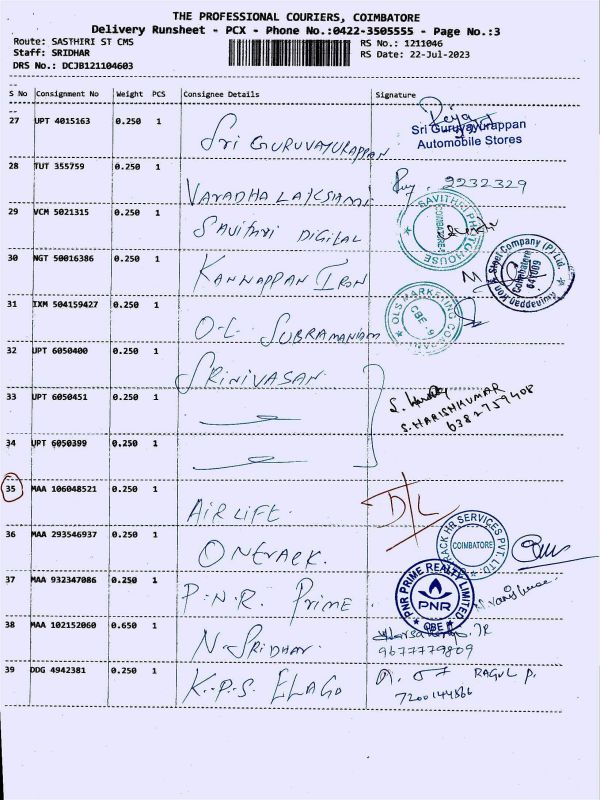 THE PROFESSIONAL COURIERS, COIMBATORE
Delivery Runsheet - PCX - Phone No.:0422-3505555 - Page No.:3
Route: SASTHIRI ST CMS
RS No.: 1211046
Staff: SRIDHAR
RS Date: 22-Jul-2023
DRS No.: DCJB121104603
S No Consignment No Weight PCS Consignee Details Signature
27 UPT 4015163 0.250 1
Sri GURUVAYURAPPAN
Sri Guruvayurappan
Automobile Stores
28 TUT 355759 0.250 1
VARADHA LAKSHAMI
2232329
29 VCM 5021315 0.250 1
SAVITHRI DIGITAL
SAVITHRI PHOTO HOUSE
COIMBATORE
30 NGT 50016386 0.250 1
KANNAPPAN IRON
Kannappan Iron & Steel Company (P) Ltd
Coimbatore
641009
31 IXM 504159427 0.250 1
O-L- SUBRAMANIAM
OLS MARKETING COMPANY
CBE. 9
32 UPT 6050400 0.250 1
SRINIVASAN
33 UPT 6050451 0.250 1
S. HARISHKUMAR
6382759408
34 UPT 6050399 0.250 1
35 MAA 106048521 0.250 1
AIRLIFT
D/L
36 MAA 293546937 0.250 1
ONTRACK.
RACK HR SERVICES PVT. LTD
COIMBATORE
37 MAA 932347086 0.250 1
P.N.R. PRIME
PNR PRIME REALTY LIMITED
PNR
CBE
38 MAA 102152060 0.650 1
N-SRIDHAR.
9677779809
39 DDG 4942381 0.250 1
K.P.S. ELAGO
RAGUL P.
7200144866